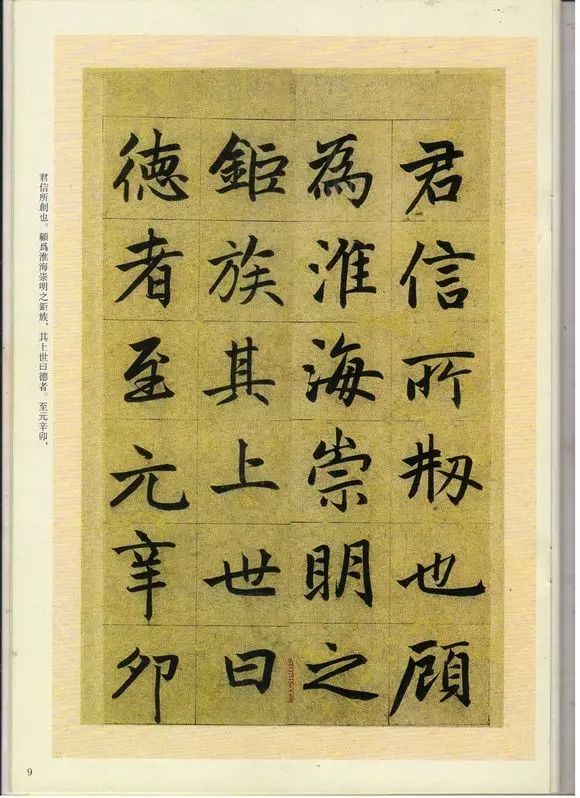 君信所刱也顧
為淮海崇明之
鉅族其上世曰
德者至元辛卯
君信所創也。顧爲淮海崇明之鉅族，其上世曰德者。至元辛卯，
9